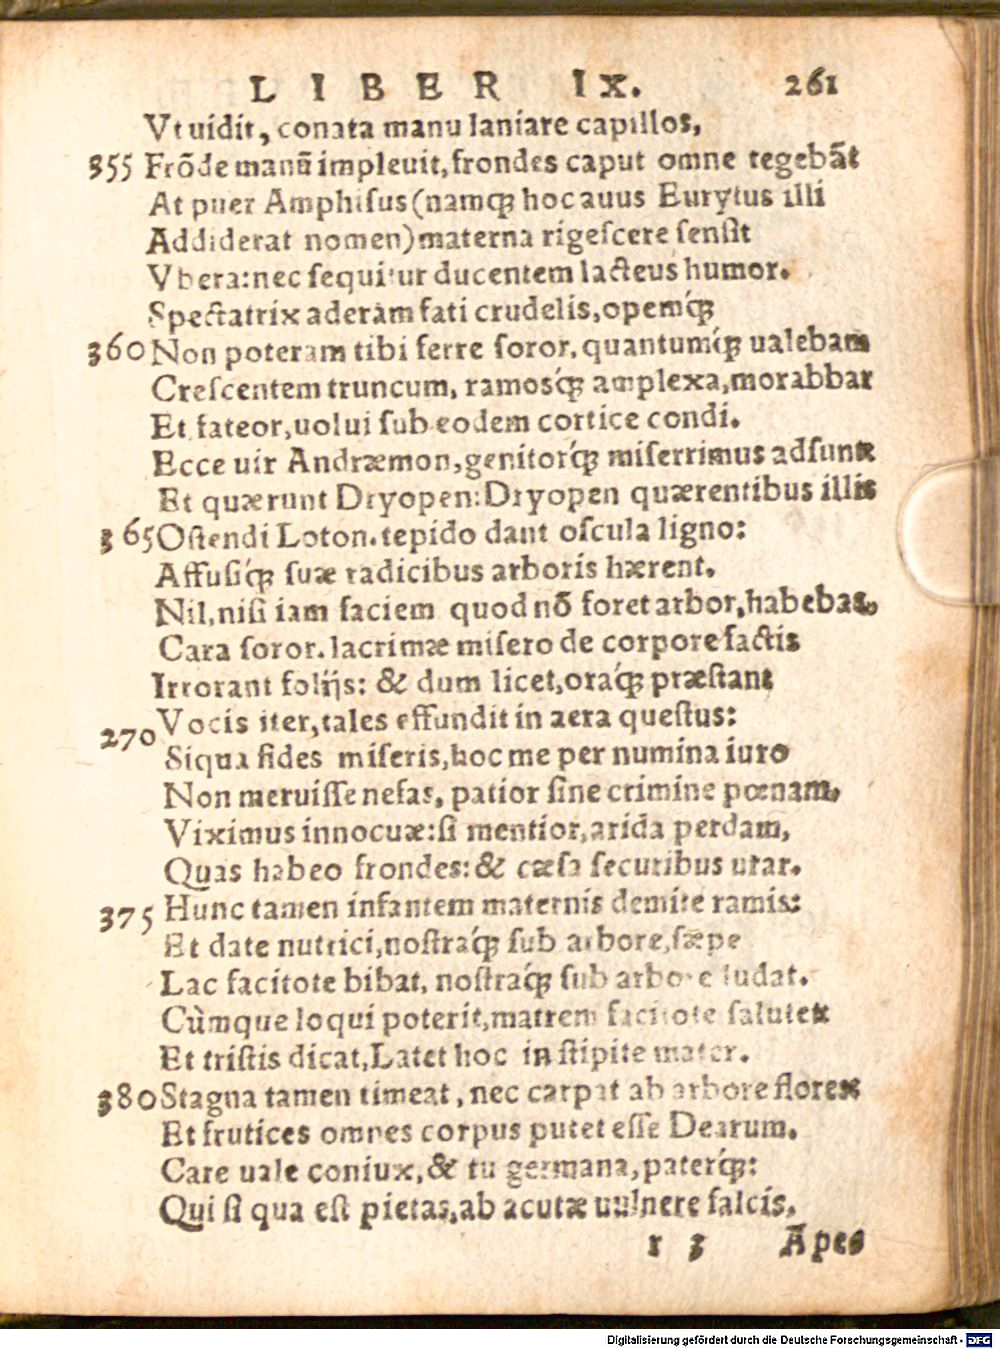 LIBER IX. 261
Vt uidit, conata manu laniare capillos,
355 Frõde manũ impleuit, frondes caput omne tegebãt
At puer Amphisus (namq́; hoc auus Eurytus illi
Addiderat nomen) materna rigescere sensit
Vbera: nec sequitur ducentem lacteus humor.
Spectatrix aderam fati crudelis, opemq́;
360 Non poteram tibi ferre soror, quantumq́; ualebam
Crescentem truncum, ramosq́; amplexa, morabbar
Et fateor, uolui sub eodem cortice condi.
Ecce uir Andræmon, genitorq́; miserrimus adsunt
Et quærunt Dryopen: Dryopen quærentibus illis
365 Ostendi Loton. tepido dant oscula ligno:
Affusiq́; suæ radicibus arboris hærent.
Nil, nisi iam faciem quod nõ foret arbor, habebas,
Cara soror. lacrimæ misero de corpore factis
Irrorant folijs: & dum licet, oraq́; præstant
270 Vocis iter, tales effundit in aera questus:
Siqua fides miseris, hoc me per numina iuro
Non meruisse nefas, patior sine crimine pœnam,
Viximus innocuæ: si mentior, arida perdam,
Quas habeo frondes: & cæsa securibus urar.
375 Hunc tamen infantem maternis demite ramis:
Et date nutrici, nostraq́; sub arbore, sæpe
Lac facitote bibat, nostraq́; sub arbore ludat.
Cùmque loqui poterit, matrem facitote salutet
Et tristis dicat, Latet hoc in stipite mater.
380 Stagna tamen timeat, nec carpat ab arbore flores
Et frutices omnes corpus putet esse Dearum.
Care uale coniux, & tu germana, paterq́;:
Qui si qua est pietas, ab acutæ uulnere falcis,
r 3 Apes
Digitalisierung gefördert durch die Deutsche Forschungsgemeinschaft - DFG